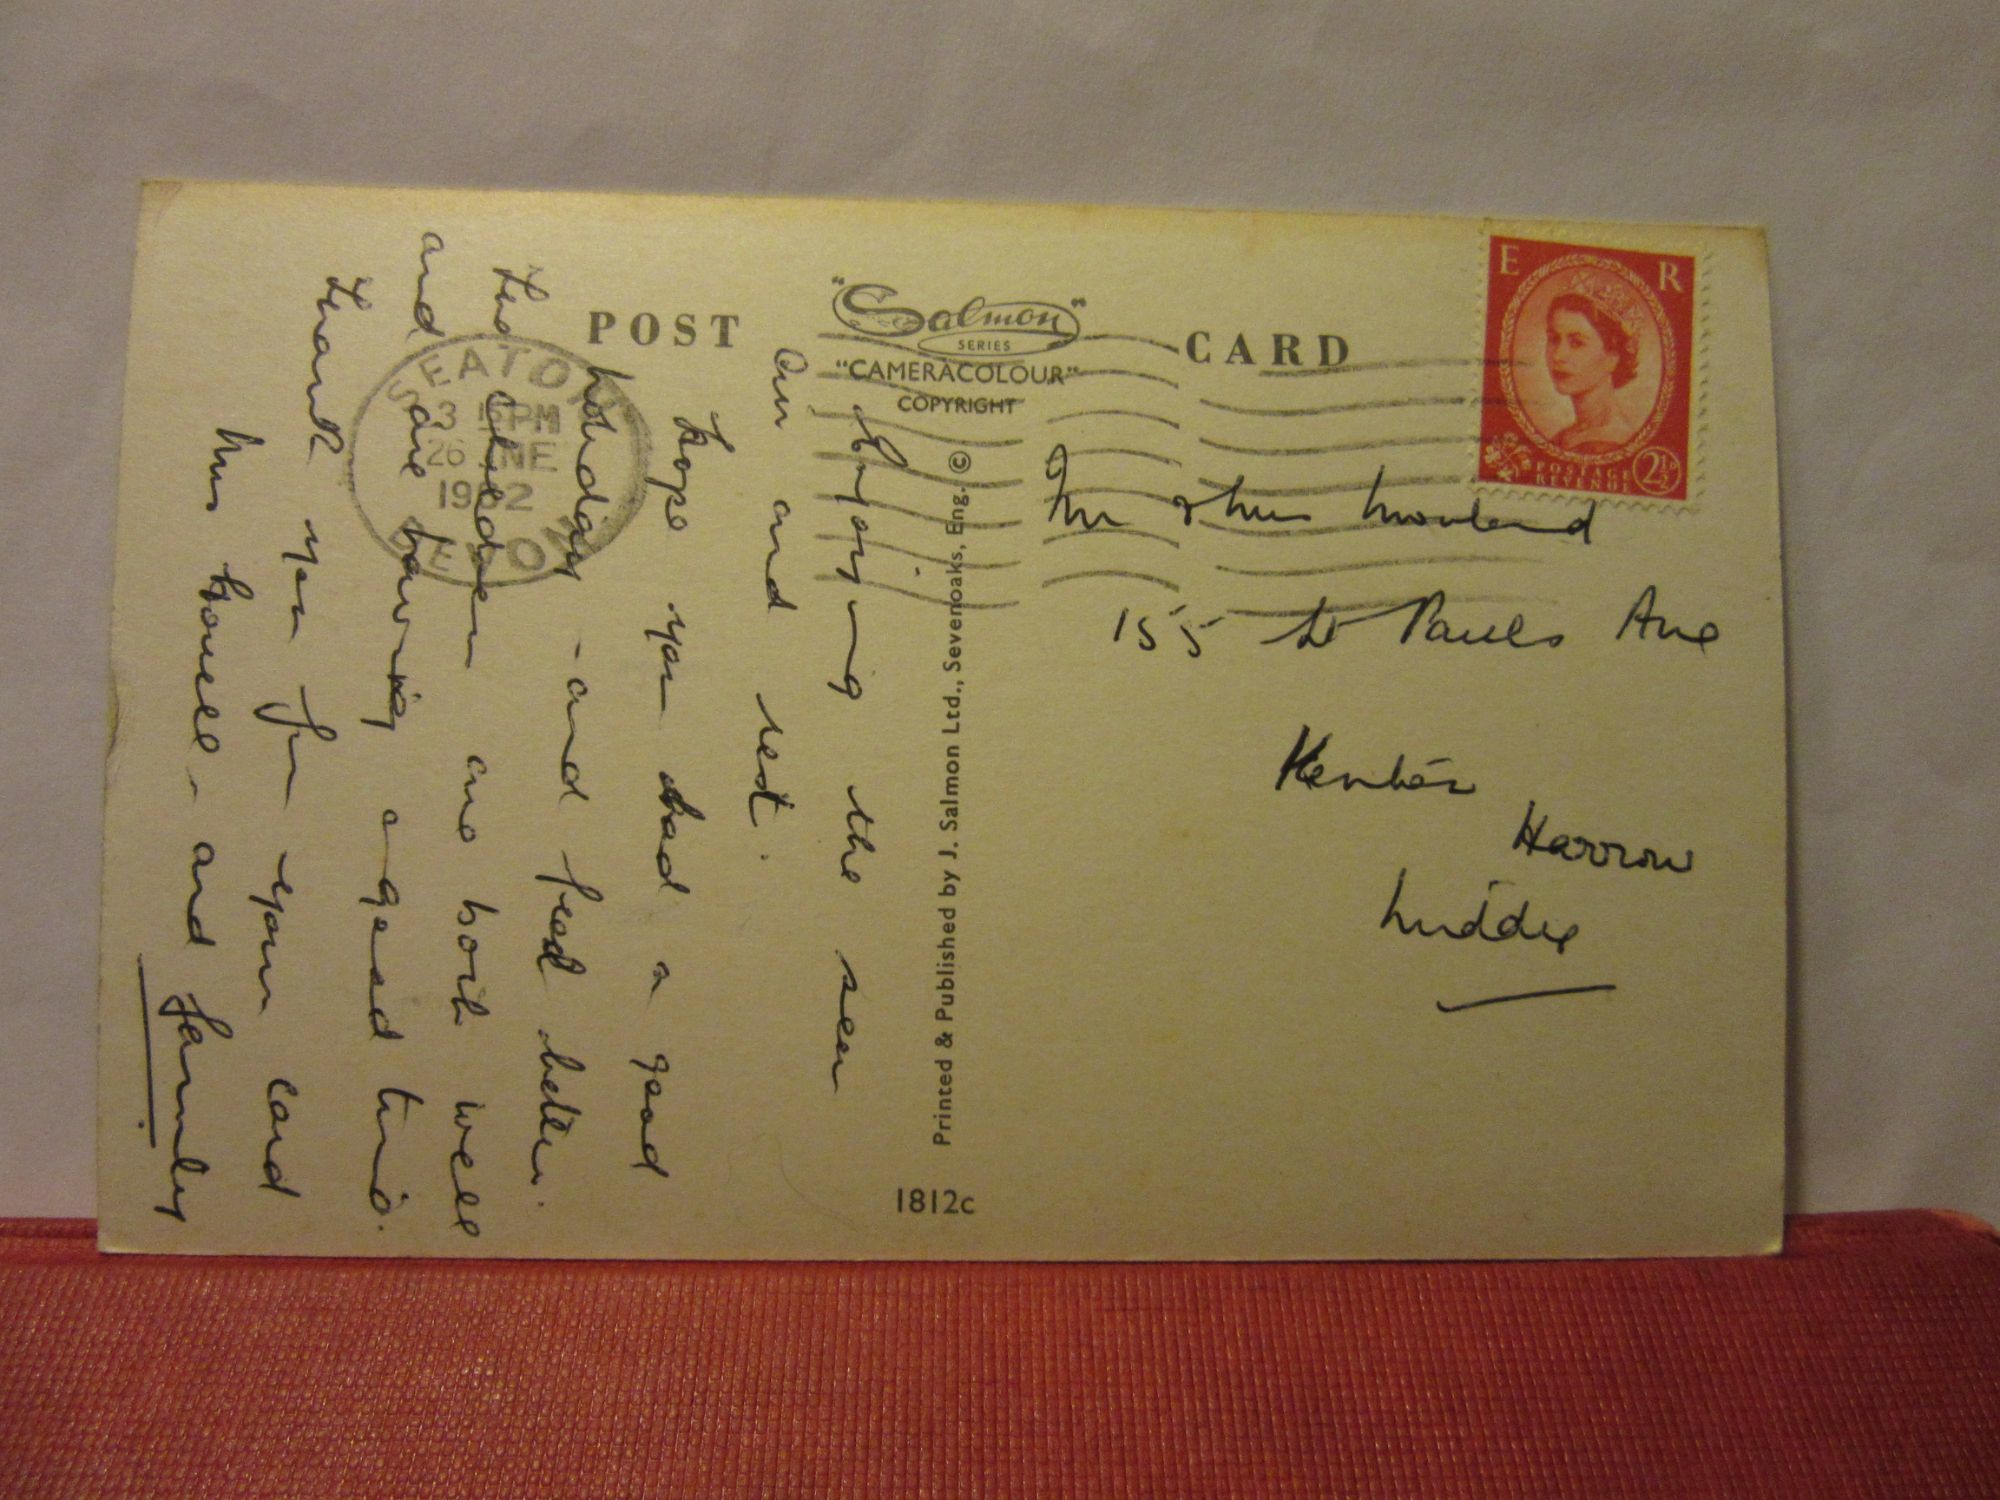 POST CARD
"Salmon"
SERIES
"CAMERACOLOUR"
COPYRIGHT
E R
POSTAGE
REVENUE
2½D
SEATON
3 15 PM
26 JNE
1962
DEVON
Enjoying the sea
air and rest.
Hope you had a good
holiday - and feel better.
The Children are both well
and are having a good time.
Thank you for your card
Mrs Howell - and family
Printed & Published by J. Salmon Ltd., Sevenoaks, Eng. ©
1812c
Mr & Mrs
155 St Pauls Ave
Kenton
Harrow
Middx